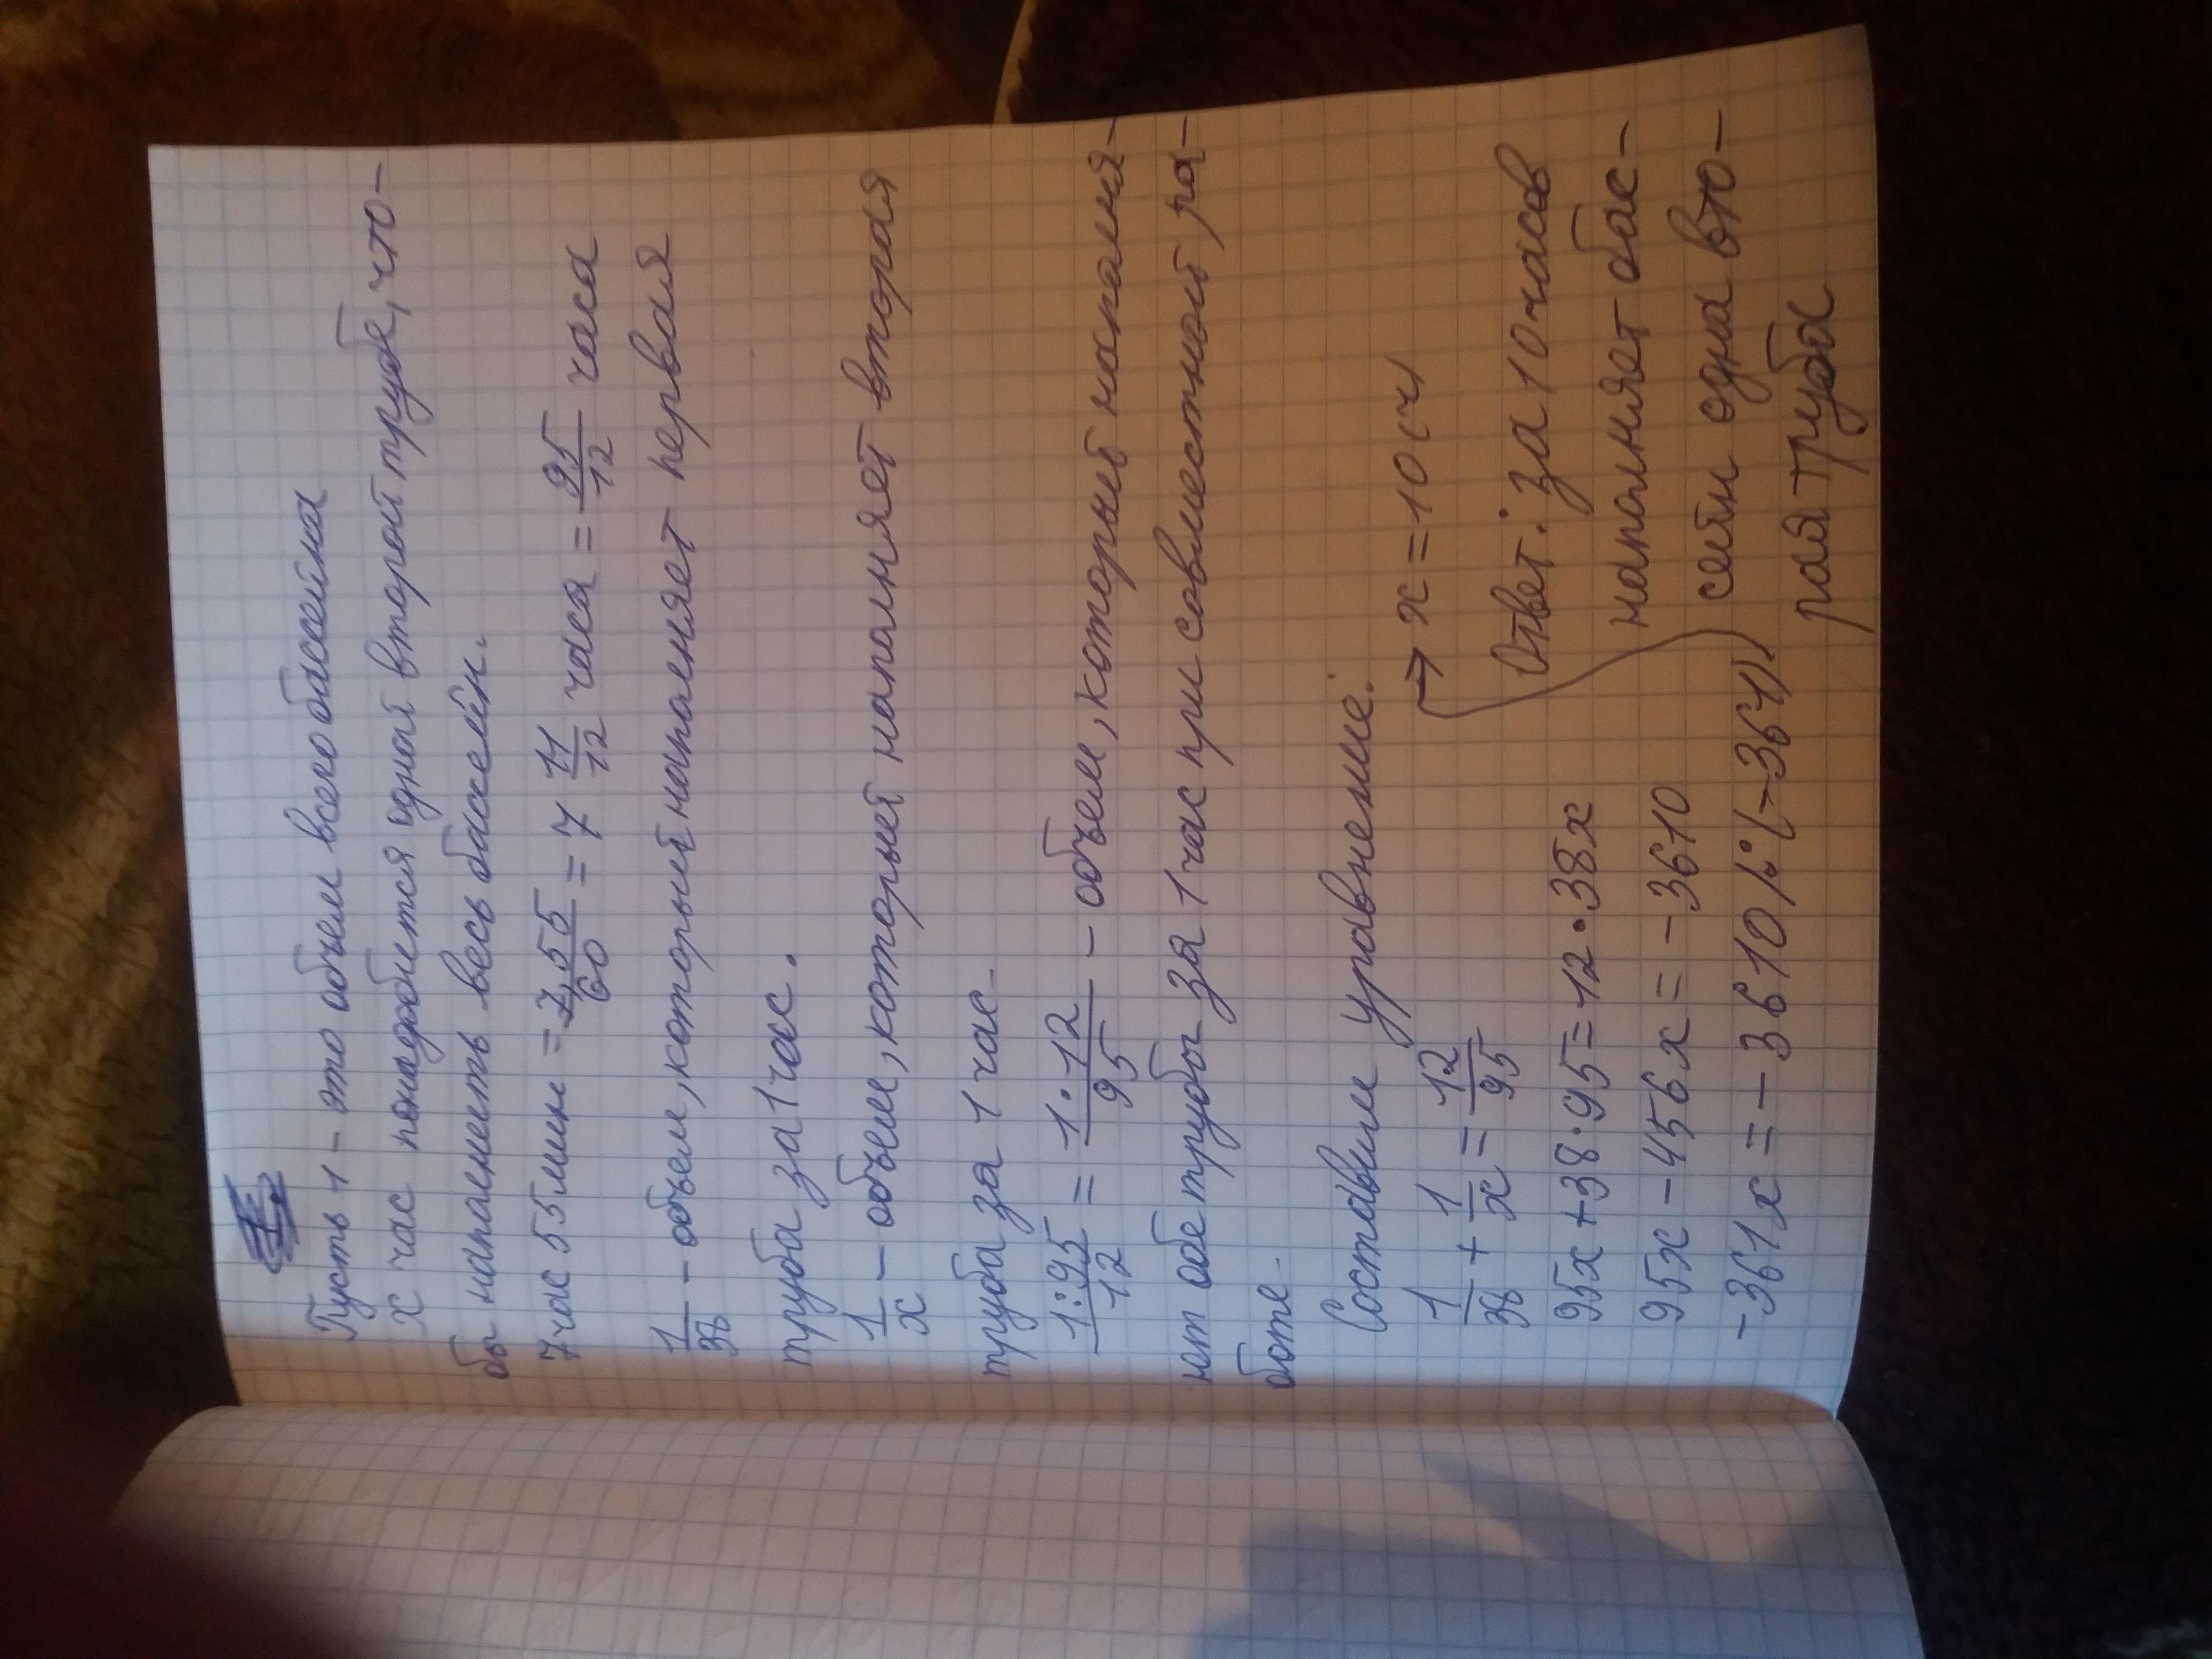 Пусть 1 - это объем всего бассейна
х час понадобится одной второй трубе, что-
бы наполнить весь бассейн.
7 час 55 мин = 7 55/60 = 7 11/12 часа = 95/12 часа
1/38 - объем, который наполняет первая
труба за 1 час.
1/х - объем, который наполняет вторая
труба за 1 час.
1:95/12 = 1·12/95 - объем, который наполня-
ют обе трубы за 1 час при совместной ра-
боте.
Составим уравнение:
1/38 + 1/х = 12/95
95х+38·95=12·38х
95х-456х=-3610
-361х=-3610/:(-361)
→ х=10(ч
Ответ: за 10 часов
наполняет бас-
сейн одна вто-
рая труба